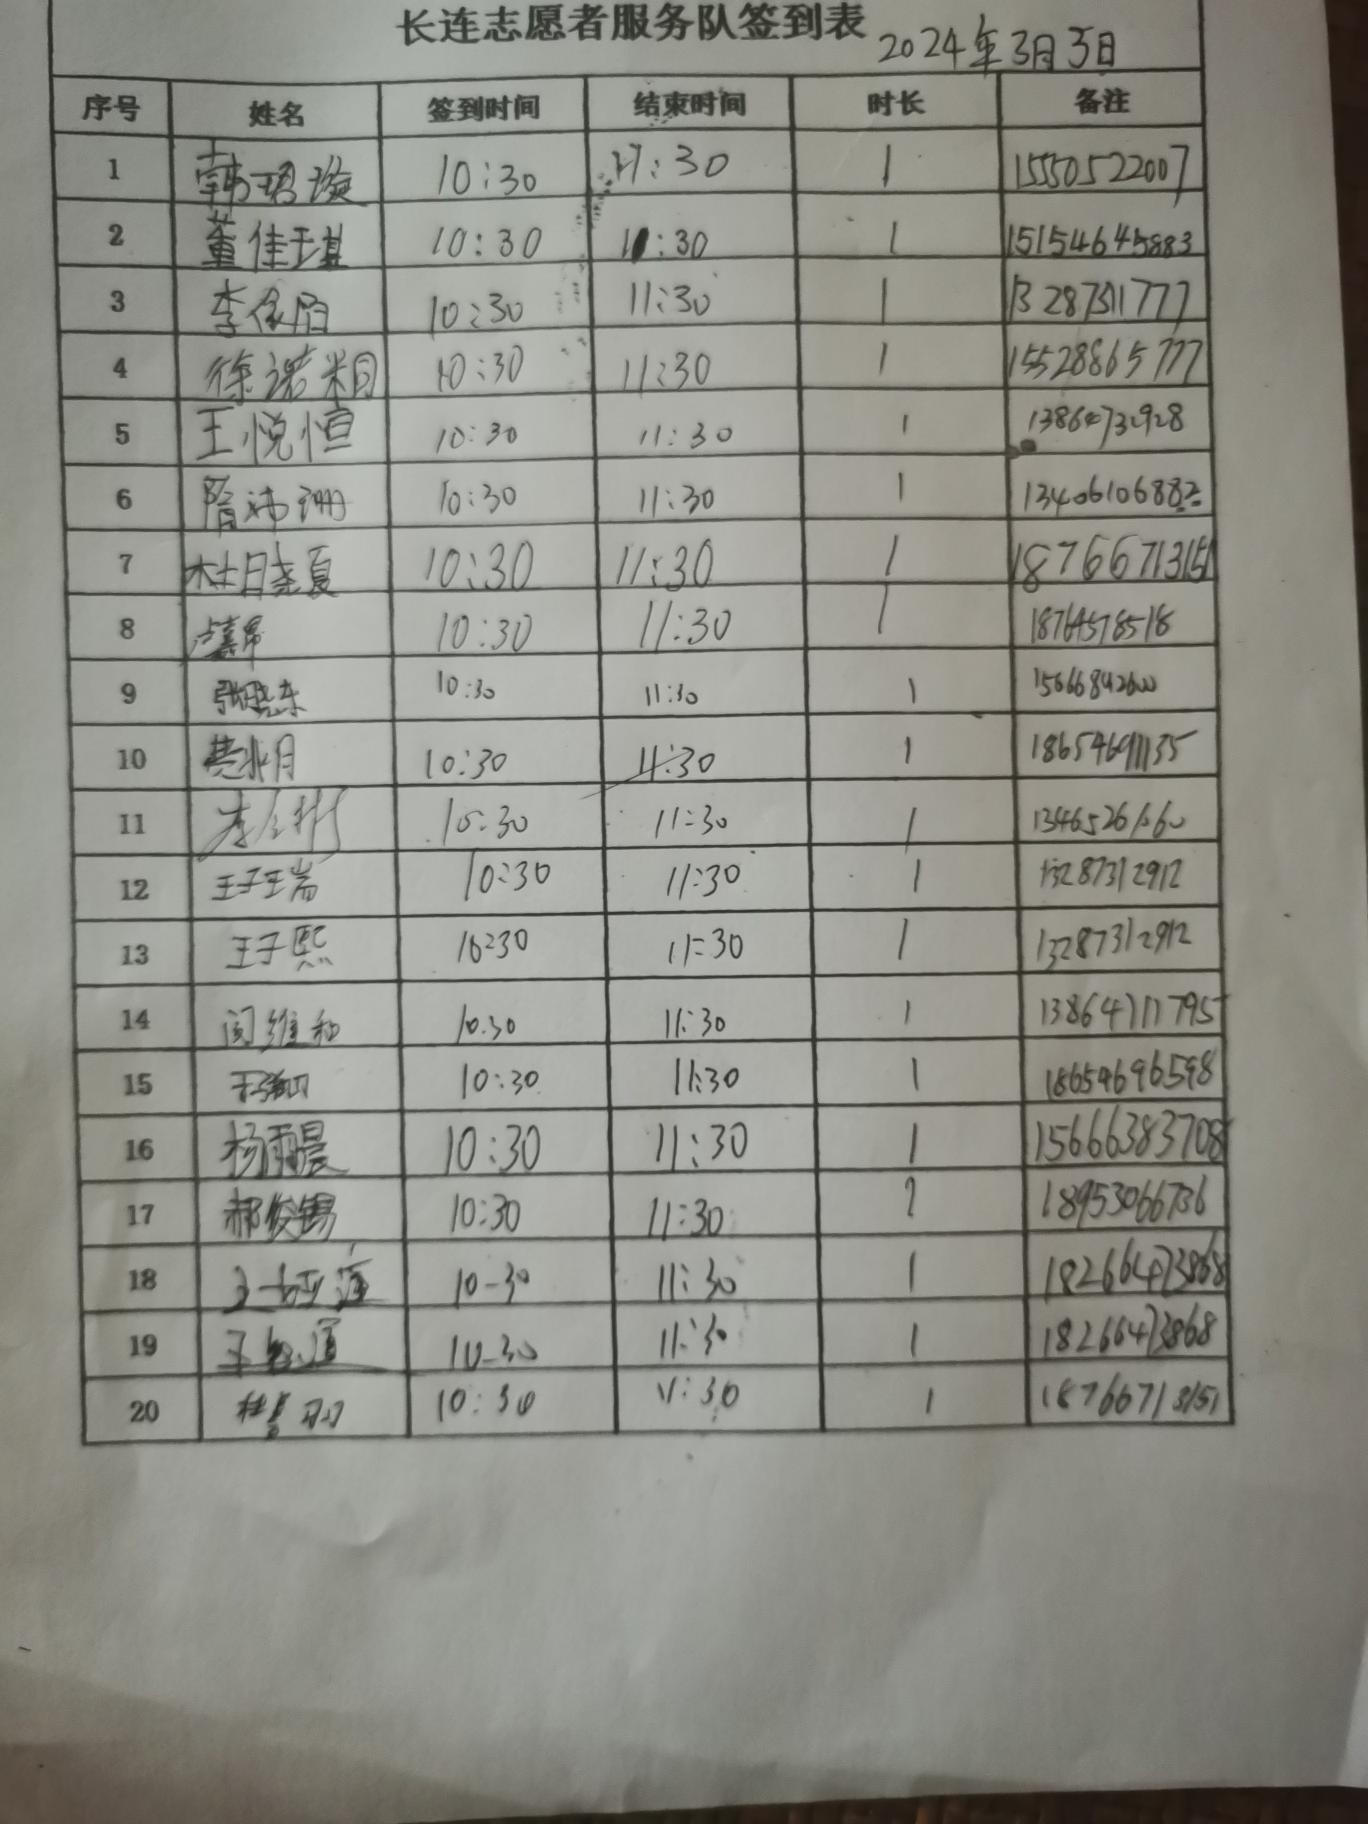 长连志愿者服务队签到表
2024年3月3日
序号 姓名 签到时间 结束时间 时长 备注
1 韩珺璇 10:30 11:30 1 15550522007
2 董佳琪 10:30 11:30 1 15154645883
3 李依宿 10:30 11:30 1 13287311777
4 徐诺 10:30 11:30 1 15528865777
5 王悦恒 10:30 11:30 1
6 隋 珊 10:30 11:30 1 13406106882
7 杜 夏 10:30 11:30 1 18766713151
8 10:30 11:30 1 18764578518
9 张晓东 10:30 11:30 1 15666842600
10 水月 10:30 11:30 1 18654691135
11 李 10:30 11:30 1
12 王子瑞 10:30 11:30 1 13287312912
13 王子熙 10:30 11:30 1 13287312912
14 闫维和 10.30 11:30 1 13864711795
15 10:30 11:30 1 18654696598
16 杨雨晨 10:30 11:30 1 15666383708
17 郝俊锡 10:30 11:30 1 18953066736
18 10-30 11:30 1 18266473868
19 王 10-30 11:30 1 18266473868
20 10:30 11:30 1 18766713151